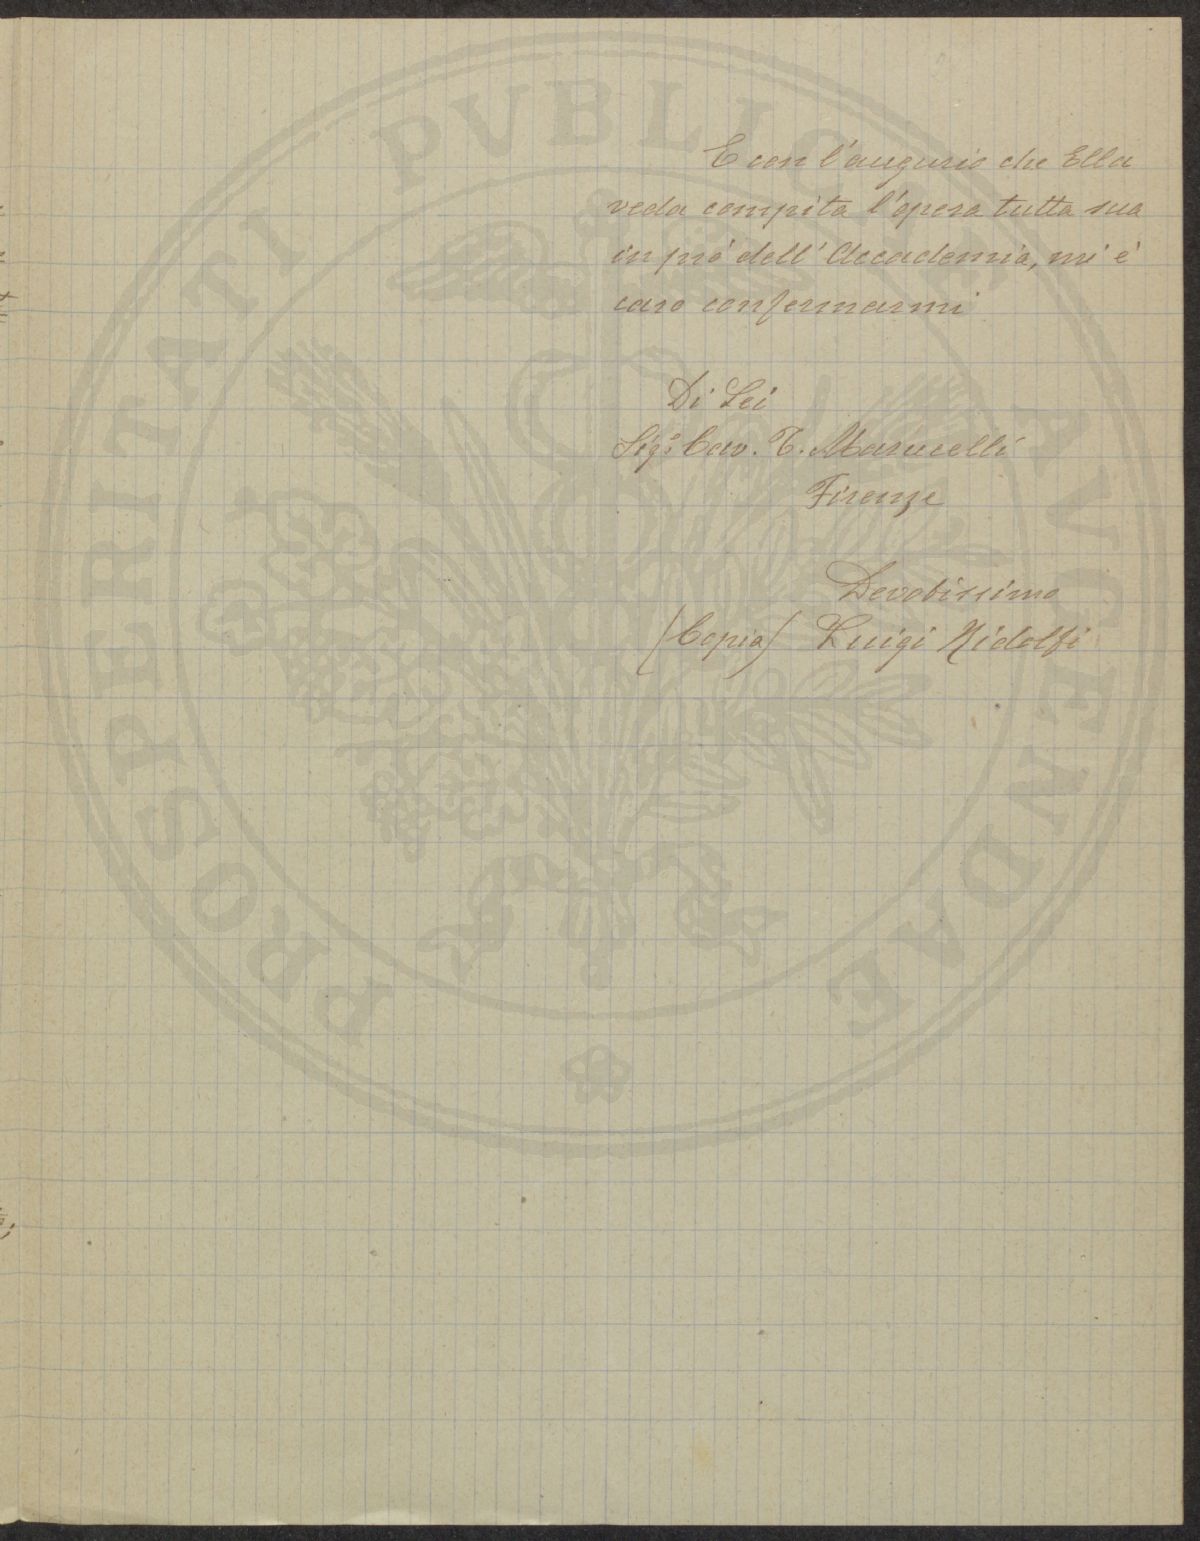 E con l'augurio che Ella
veda compita l'opera tutta sua
in pró dell'Accademia, mi é
caro confermarmi
Di Lei
Sigr Cav. T. Marucelli
Firenze
Devotissimo
(Copia) Luigi Ridolfi
PROSPERITATI PUBLICAE AVGENDAE